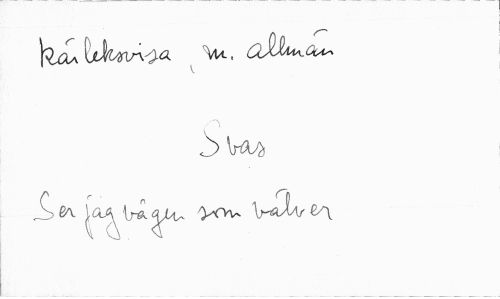 kärleksvisa, m. allmän
Svas
Ser jag vågen som välver